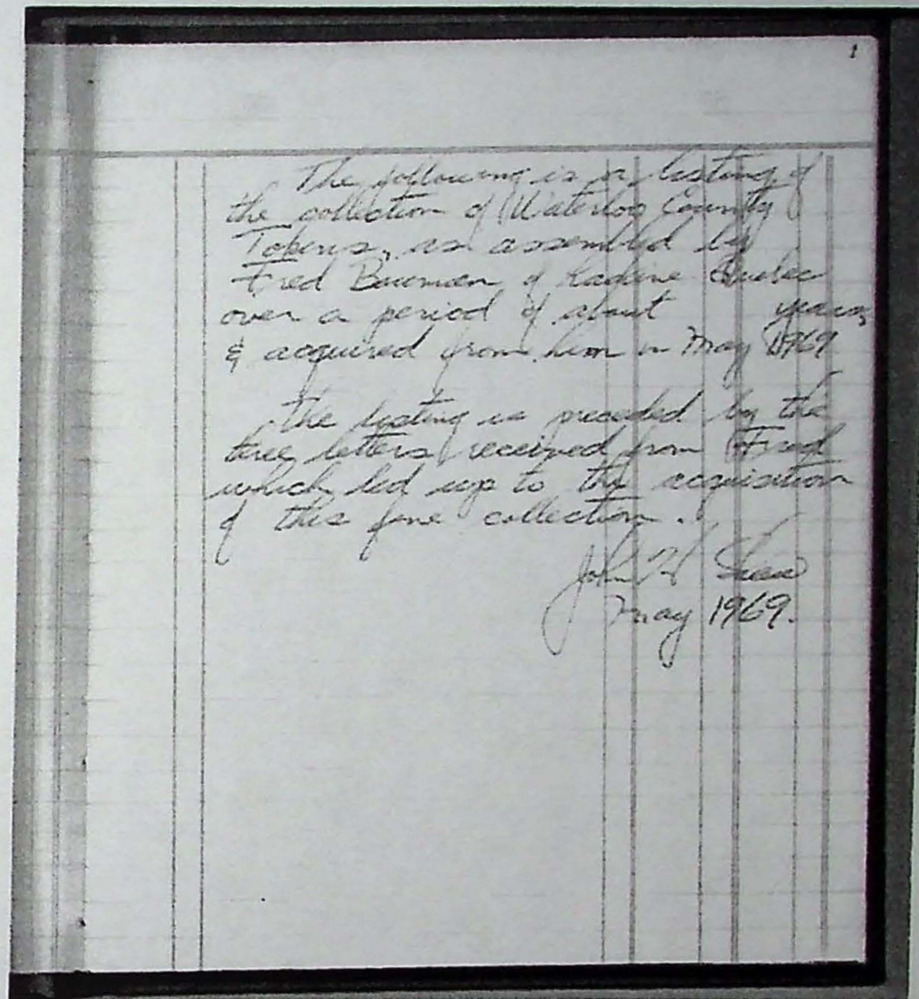 1
The following is a listing of
the collection of Waterloo County
Tokens, as assembled by
Fred Bowman of Lachine Quebec
over a period of about years
& acquired from him in May 1969
The listing is preceded by the
three letters received from Fred
which led up to the acquisition
of this fine collection.
John
May 1969.